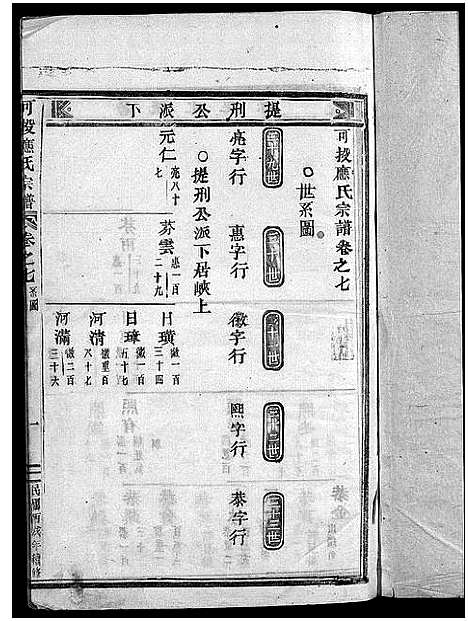 提刑公派下
可投應氏宗譜卷之七
世系圖
二十九世
三十世
三十一世
三十二世
三十三世
亮字行
惠字行
徽字行
熙字行
恭字行
提刑公派下居峽上
元仁
亮八十七
惠一百二十九
日璜
徽一百三十四
日璋
徽一百五十七
河清
徽一百八十七
河滿
徽二百三十六
可投應氏宗譜
卷之七
系圖
一